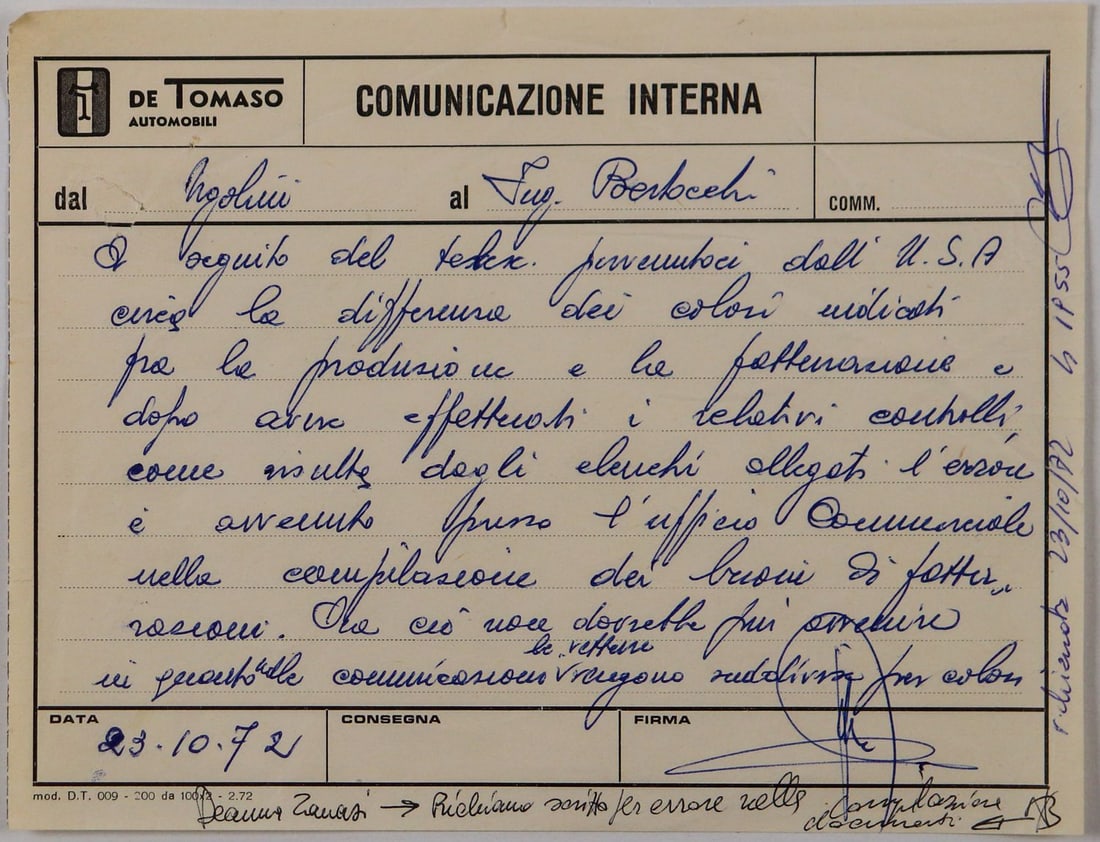 DE TOMASO
AUTOMOBILI
COMUNICAZIONE INTERNA
dal Ugolini al Ing. Bertocchi COMM.
A seguito del telex. pervenutoci dall' U.S.A
circa la differenza dei colori indicati
fra la produzione e la fatturazione e
dopo aver effettuati i relativi controlli,
come risulta dagli elenchi allegati l'errore
è avvenuto presso l'ufficio Commerciale
nella compilazione dei buoni di fattu„
razioni. Ora ciò non dovrebbe più avvenire
le vetture
in quanto nelle comunicazioni vengono suddivise per colori
DATA 23.10.72 CONSEGNA FIRMA
mod. D.T. 009 - 200 da 100x2 - 2.72
Deanna Zanasi → Richiamo scritto per errore nella compilazione
documenti
23/10/72